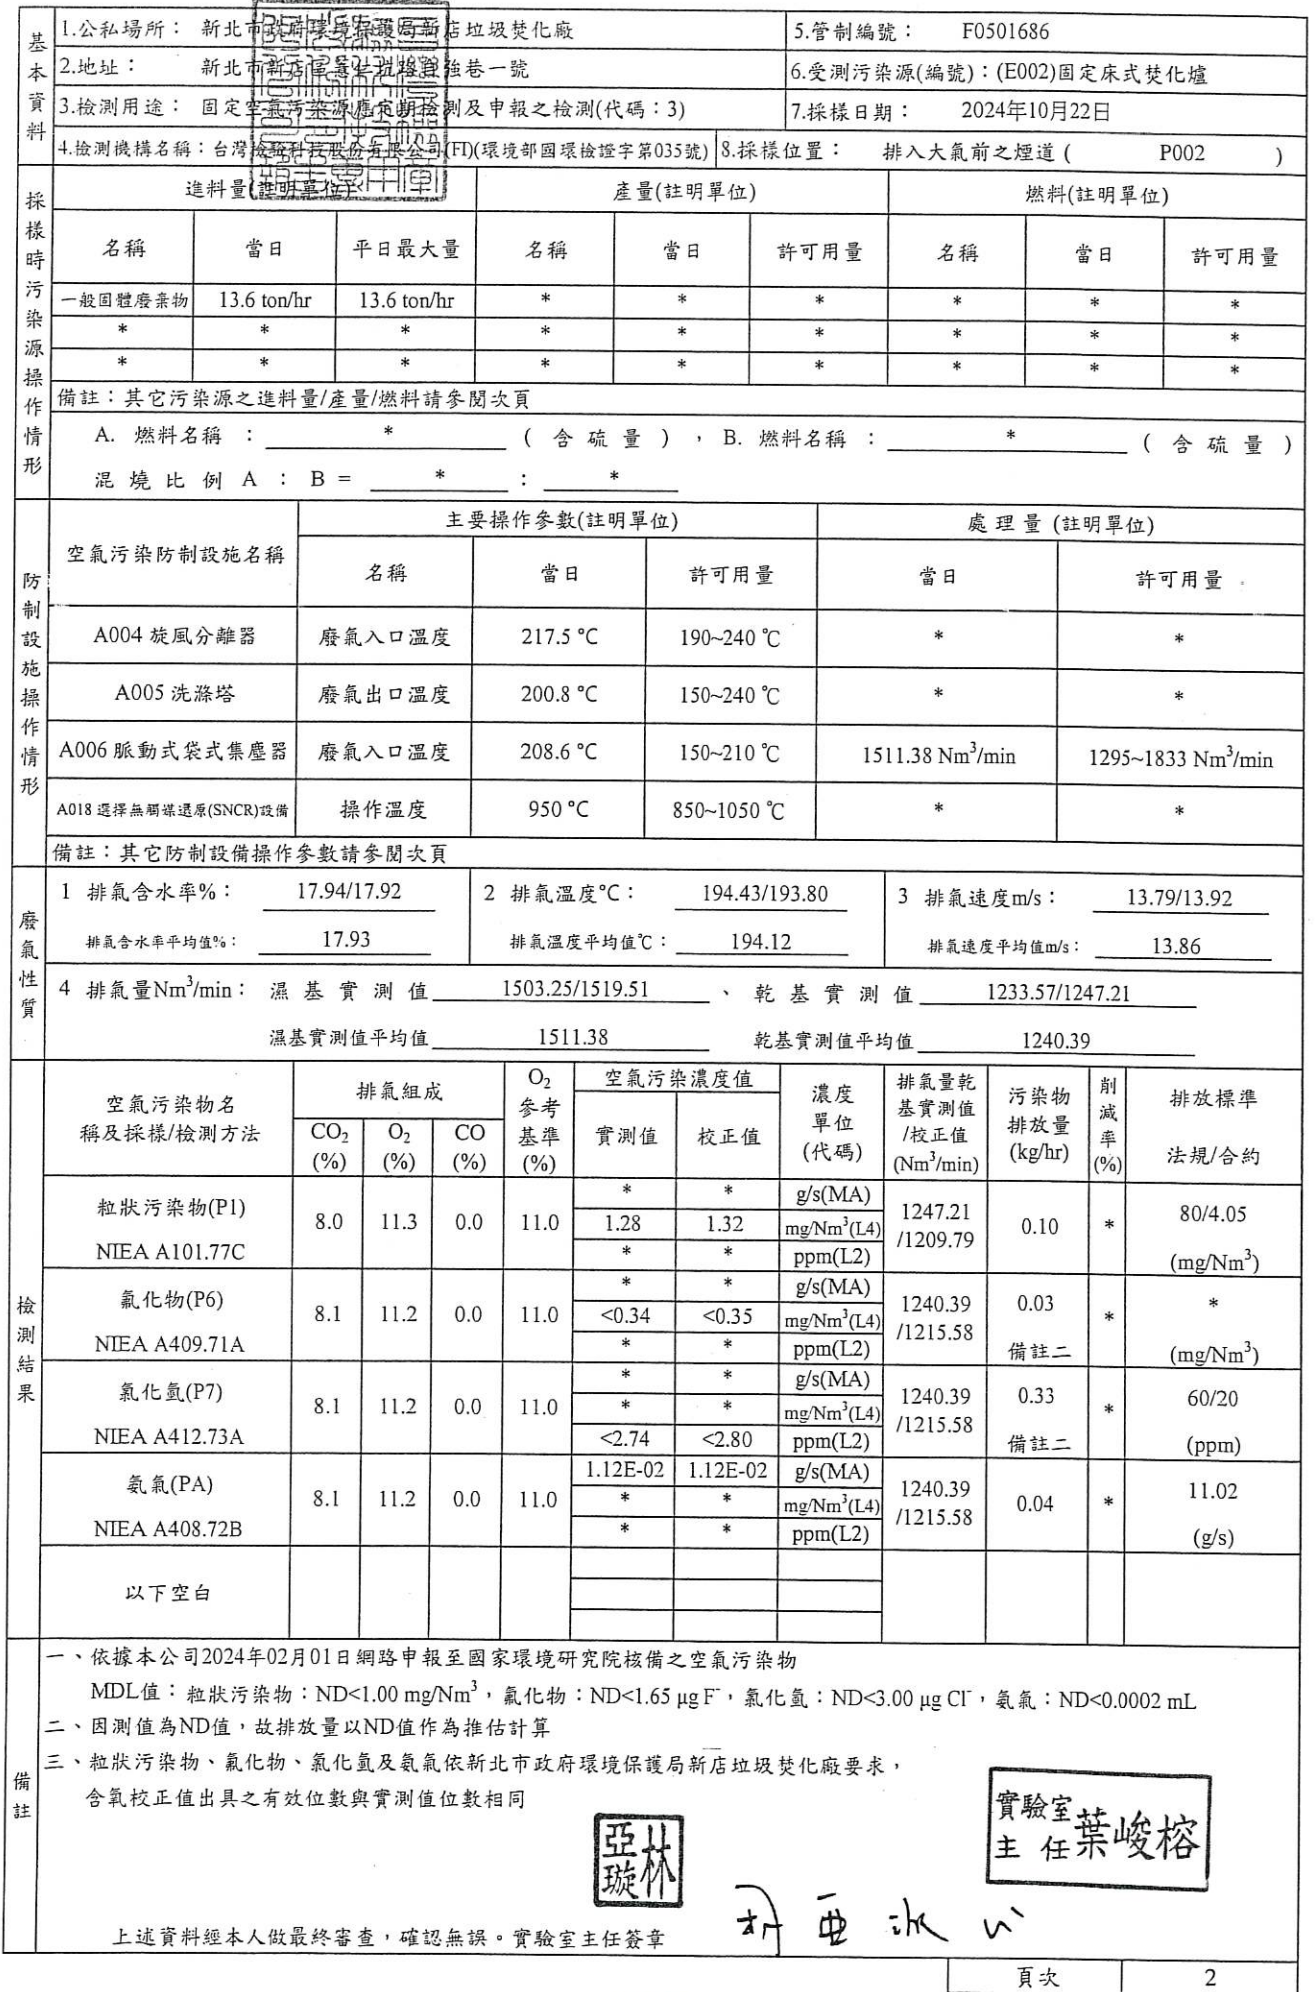 基本資料
1.公私場所： 新北市政府環境保護局新店垃圾焚化廠 5.管制編號： F0501686
2.地址： 新北市新店區薏仁坑路自強巷一號 6.受測污染源(編號)：(E002)固定床式焚化爐
3.檢測用途： 固定空氣污染源應定期檢測及申報之檢測(代碼：3) 7.採樣日期： 2024年10月22日
4.檢測機構名稱：台灣檢驗科技股份有限公司(FI)(環境部國環檢證字第035號) 8.採樣位置： 排入大氣前之煙道 ( P002 )
採樣時污染源操作情形
進料量(註明單位) 產量(註明單位) 燃料(註明單位)
名稱 當日 平日最大量 名稱 當日 許可用量 名稱 當日 許可用量
一般固體廢棄物 13.6 ton/hr 13.6 ton/hr * * * * * *
* * * * * * * * *
* * * * * * * * *
備註：其它污染源之進料量/產量/燃料請參閱次頁
A. 燃料名稱 ： * ( 含硫量 ) ，B. 燃料名稱 ： * ( 含硫量 )
混燒比例 A ： B = * ： *
防制設施操作情形
空氣污染防制設施名稱 主要操作參數(註明單位) 處理量 (註明單位)
名稱 當日 許可用量 當日 許可用量
A004 旋風分離器 廢氣入口溫度 217.5 °C 190~240 ℃ * *
A005 洗滌塔 廢氣出口溫度 200.8 °C 150~240 ℃ * *
A006 脈動式袋式集塵器 廢氣入口溫度 208.6 °C 150~210 ℃ 1511.38 Nm³/min 1295~1833 Nm³/min
A018 選擇無觸媒還原(SNCR)設備 操作溫度 950 °C 850~1050 ℃ * *
備註：其它防制設備操作參數請參閱次頁
廢氣性質
1 排氣含水率%： 17.94/17.92 2 排氣溫度°C： 194.43/193.80 3 排氣速度m/s： 13.79/13.92
排氣含水率平均值%： 17.93 排氣溫度平均值℃： 194.12 排氣速度平均值m/s： 13.86
4 排氣量Nm³/min： 濕基實測值 1503.25/1519.51 、乾基實測值 1233.57/1247.21
濕基實測值平均值 1511.38 乾基實測值平均值 1240.39
檢測結果
空氣污染物名稱及採樣/檢測方法 排氣組成 O₂參考基準(%) 空氣污染濃度值 濃度單位(代碼) 排氣量乾基實測值/校正值(Nm³/min) 污染物排放量(kg/hr) 削減率(%) 排放標準 法規/合約
CO₂(%) O₂(%) CO(%) 實測值 校正值
粒狀污染物(P1) NIEA A101.77C 8.0 11.3 0.0 11.0 * * g/s(MA) 1247.21/1209.79 0.10 * 80/4.05 (mg/Nm³)
1.28 1.32 mg/Nm³(L4)
* * ppm(L2)
氟化物(P6) NIEA A409.71A 8.1 11.2 0.0 11.0 * * g/s(MA) 1240.39/1215.58 0.03 備註二 * * (mg/Nm³)
<0.34 <0.35 mg/Nm³(L4)
* * ppm(L2)
氯化氫(P7) NIEA A412.73A 8.1 11.2 0.0 11.0 * * g/s(MA) 1240.39/1215.58 0.33 備註二 * 60/20 (ppm)
* * mg/Nm³(L4)
<2.74 <2.80 ppm(L2)
氨氣(PA) NIEA A408.72B 8.1 11.2 0.0 11.0 1.12E-02 1.12E-02 g/s(MA) 1240.39/1215.58 0.04 * 11.02 (g/s)
* * mg/Nm³(L4)
* * ppm(L2)
以下空白
備註
一、依據本公司2024年02月01日網路申報至國家環境研究院核備之空氣污染物
MDL值：粒狀污染物：ND<1.00 mg/Nm³，氟化物：ND<1.65 μg F⁻，氯化氫：ND<3.00 μg Cl⁻，氨氣：ND<0.0002 mL
二、因測值為ND值，故排放量以ND值作為推估計算
三、粒狀污染物、氟化物、氯化氫及氨氣依新北市政府環境保護局新店垃圾焚化廠要求，
含氧校正值出具之有效位數與實測值位數相同
實驗室主任 葉峻榕
林亞璇
上述資料經本人做最終審查，確認無誤。實驗室主任簽章
頁次 2